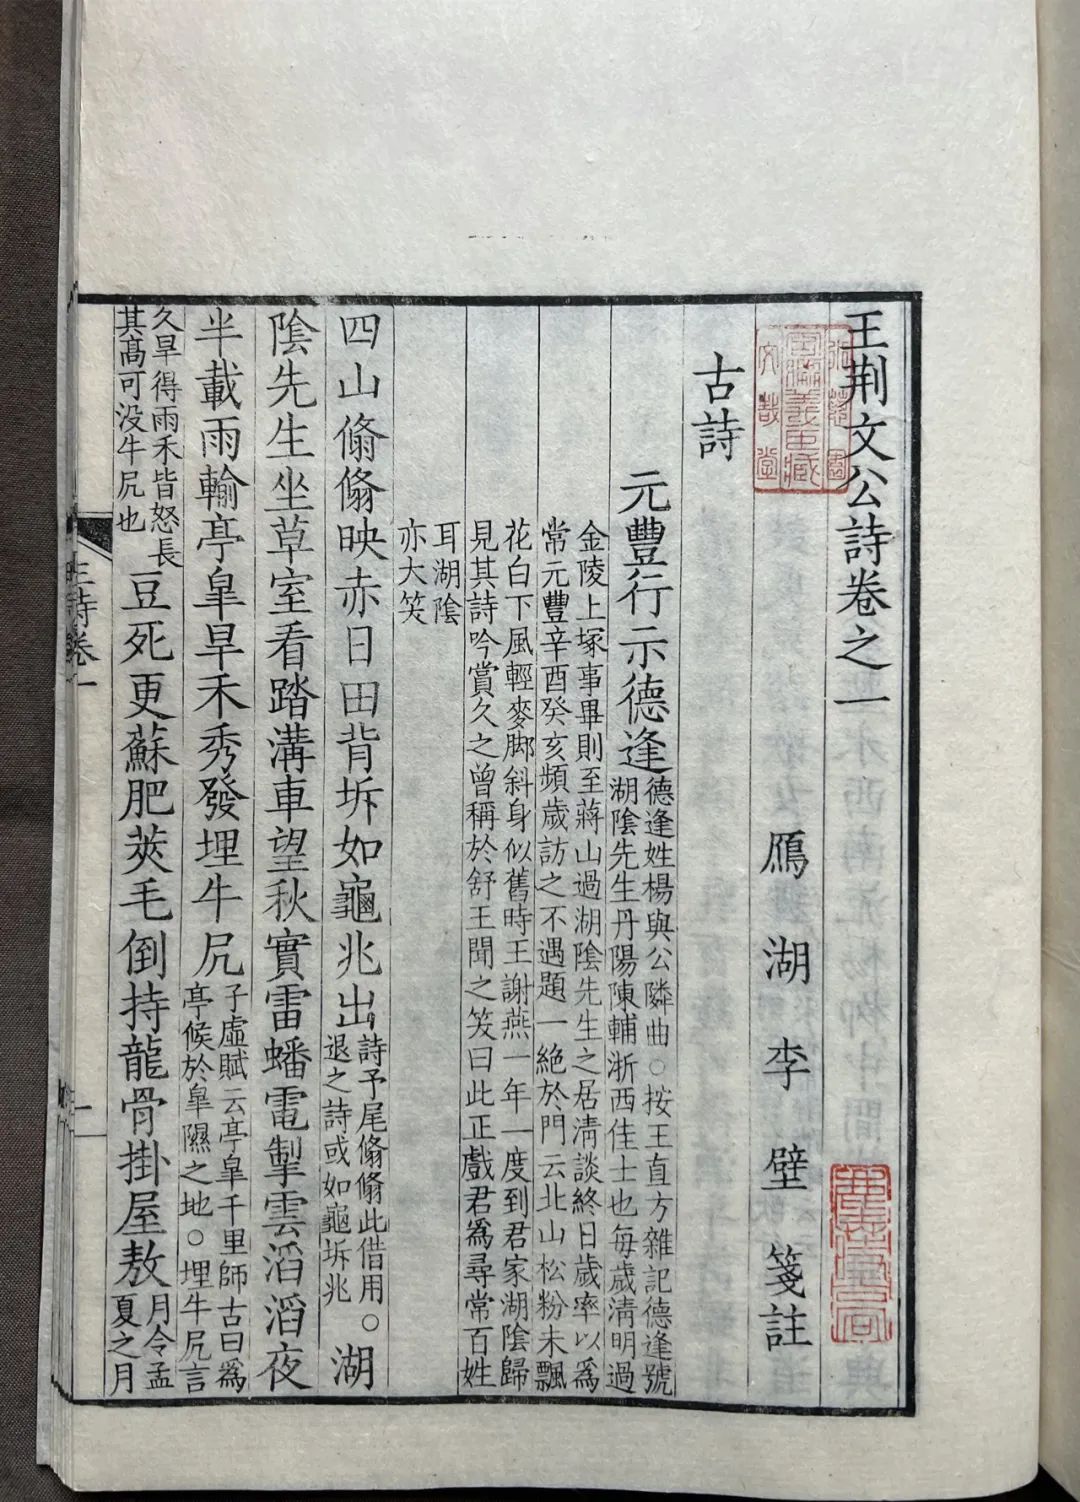 王荆文公詩卷之一
鴈湖李壁箋註
古詩
元豐行示德逢
德逢姓楊與公隣曲○按王直方雜記德逢號
湖陰先生丹陽陳輔浙西佳士也每歲清明過
金陵上塚事畢則至蔣山過湖陰先生之居清談終日歲率以爲
常元豐辛酉癸亥頻歲訪之不遇題一絶於門云北山松粉未飄
花白下風輕麥脚斜身似舊時王謝燕一年一度到君家湖陰歸
見其詩吟賞久之曾稱於舒王聞之笑曰此正戲君爲尋常百姓
耳湖陰
亦大笑
四山翛翛映赤日田背坼如龜兆出
詩予尾翛翛此借用○
退之詩或如龜坼兆
湖
陰先生坐草室看踏溝車望秋實雷蟠電掣雲滔滔夜
半載雨輸亭臯旱禾秀發埋牛尻
子虛賦云亭臯千里師古曰爲
亭候於臯隰之地○埋牛尻言
久旱得雨禾皆怒長
其高可没牛尻也
豆死更蘇肥莢毛倒持龍骨掛屋敖
月令孟
夏之月
王詩卷一
一